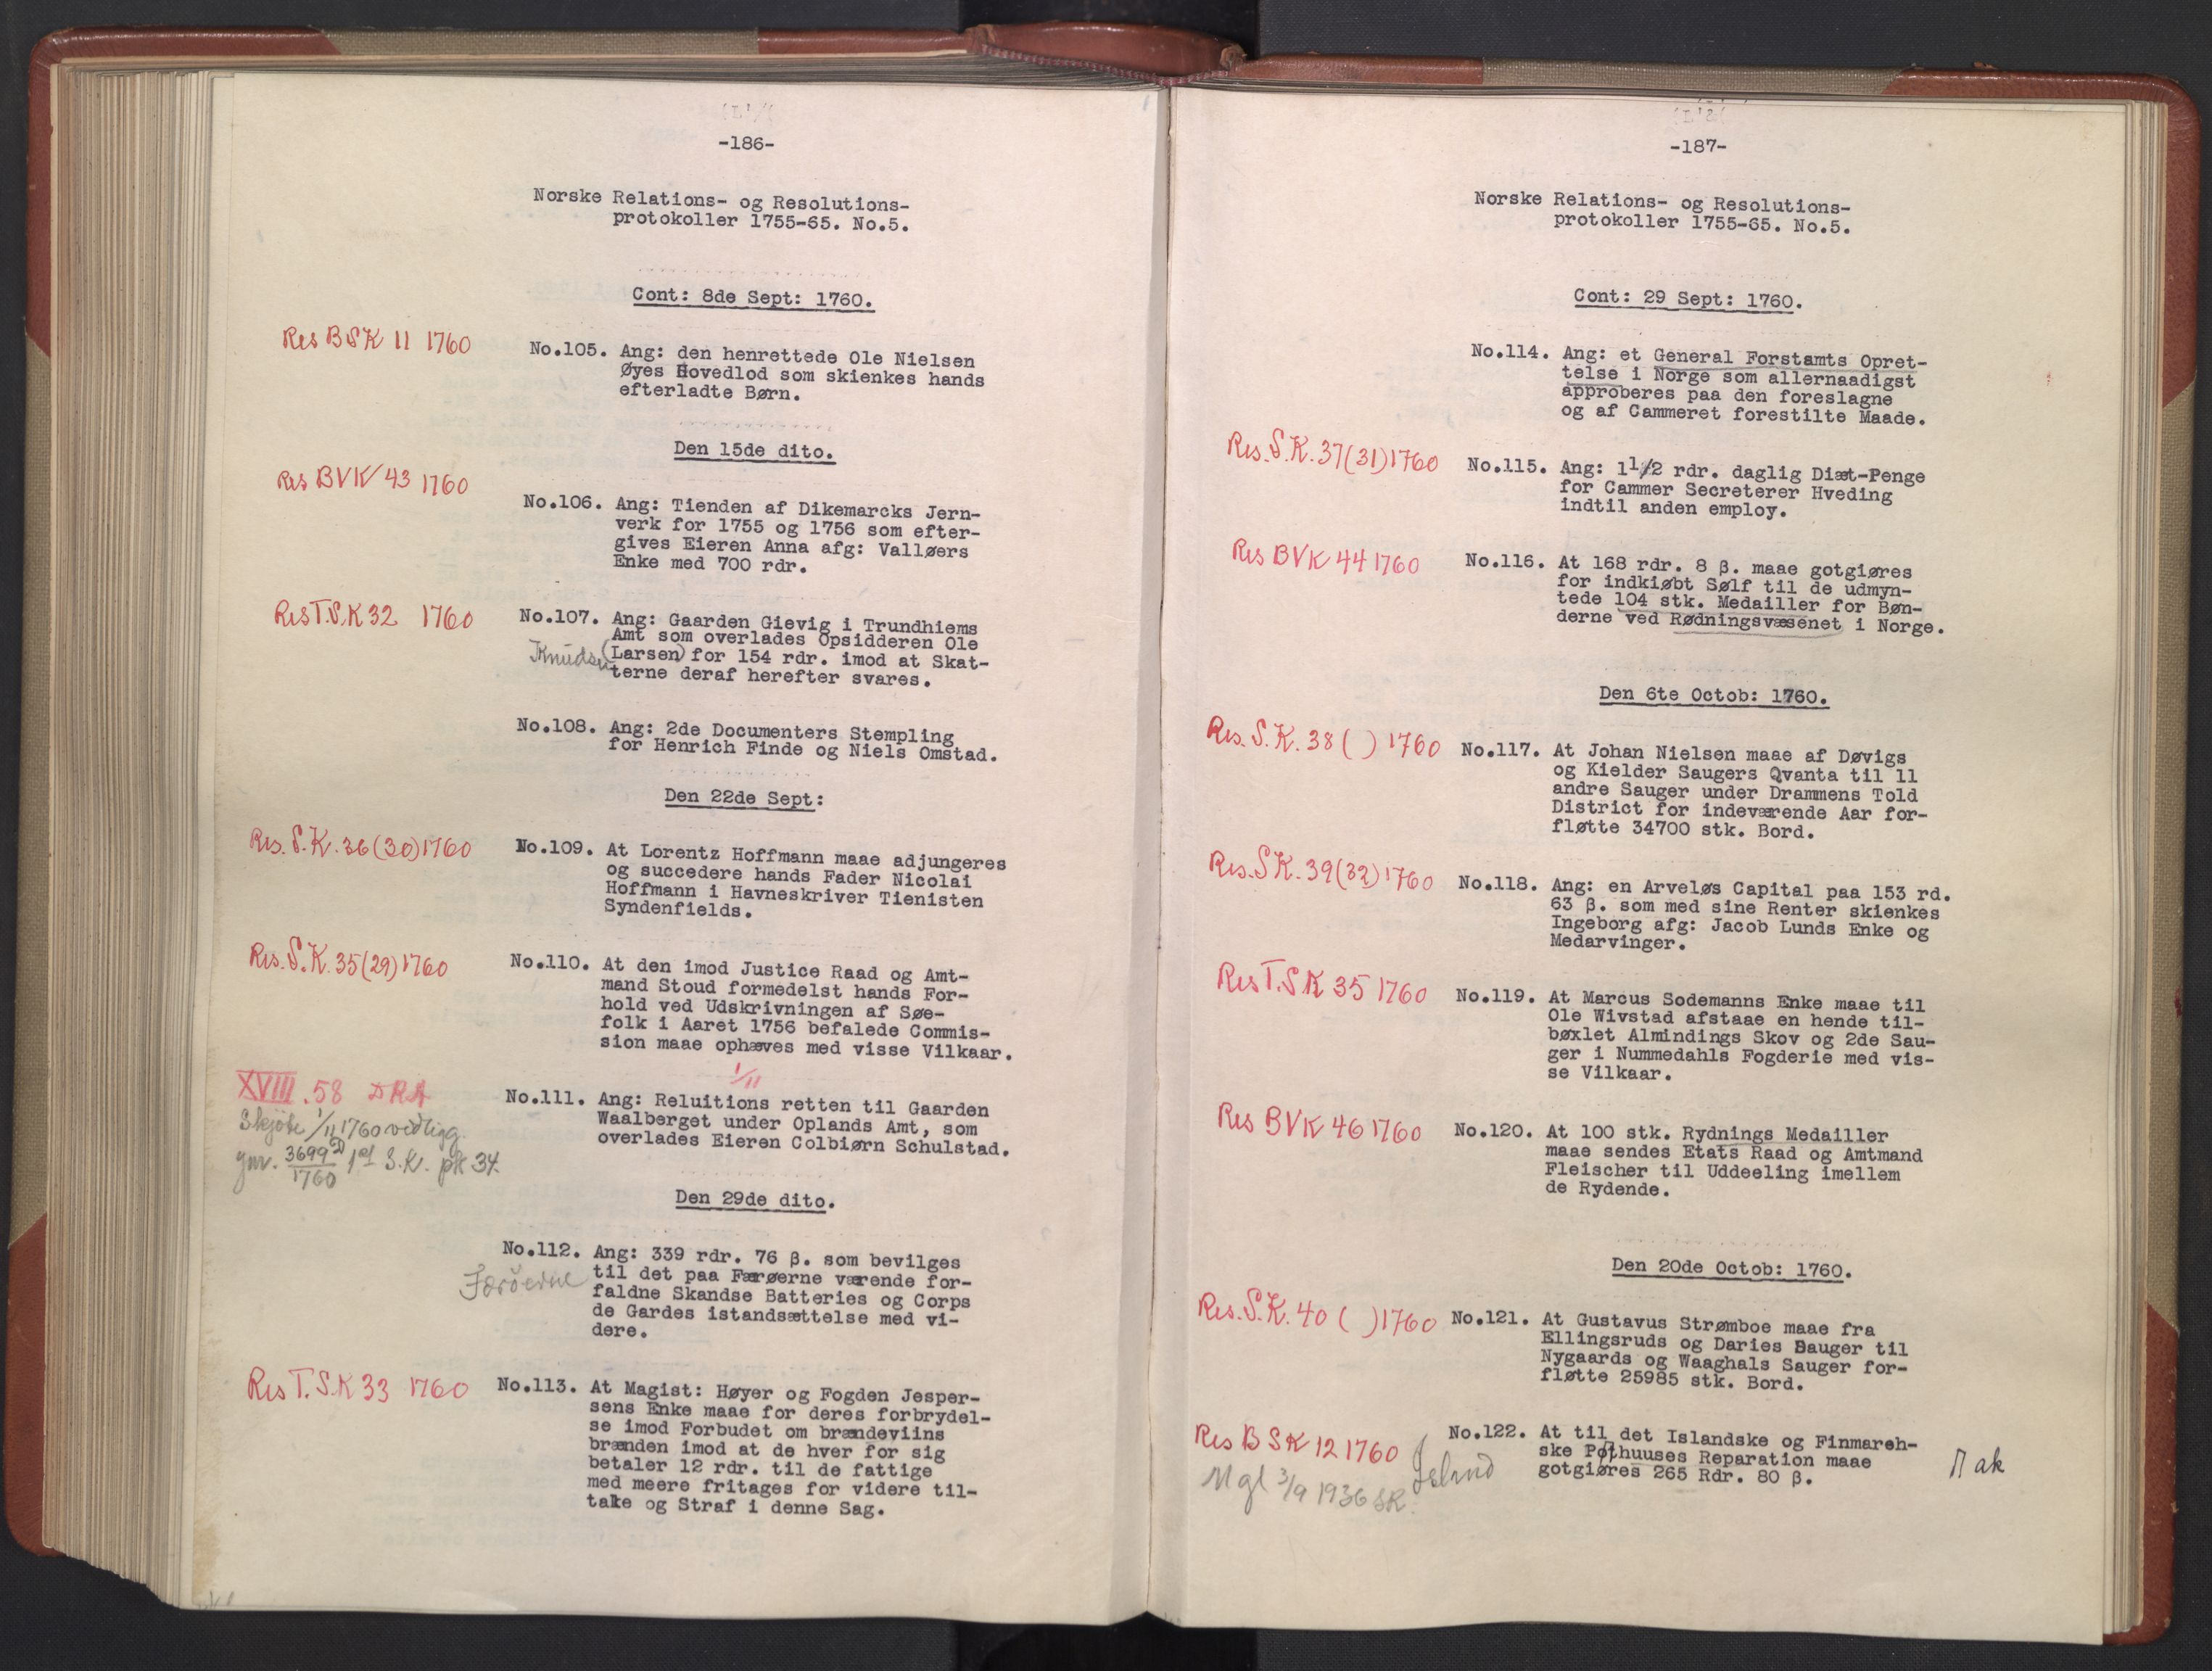 -186-
Norske Relations- og Resolutions-
protokoller 1755-65. No.5.
Cont: 8de Sept: 1760.
Res BSK 11 1760
No.105. Ang: den henrettede Ole Nielsen
Øyes Hovedlod som skienkes hands
efterladte Børn.
Den 15de dito.
Res BVK 43 1760
No.106. Ang: Tienden af Dikemarcks Jern-
verk for 1755 og 1756 som efter-
gives Eieren Anna afg: Valløers
Enke med 700 rdr.
Res T.S.K 32 1760
No.107. Ang: Gaarden Gievig i Trundhiems
Amt som overlades Opsidderen Ole
Knudsen (Larsen) for 154 rdr. imod at Skat-
terne deraf herefter svares.
No.108. Ang: 2de Documenters Stempling
for Henrich Finde og Niels Omstad.
Den 22de Sept:
Res. S.K. 36(30) 1760
No.109. At Lorentz Hoffmann maae adjungeres
og succedere hands Fader Nicolai
Hoffmann i Havneskriver Tienisten
Syndenfields.
Res. S.K. 35(29) 1760
No.110. At den imod Justice Raad og Amt-
mand Stoud formedelst hands For-
hold ved Udskrivningen af Søe-
folk i Aaret 1756 befalede Commis-
sion maae ophæves med visse Vilkaar.
1/11
XVIII.58 DRA
Skjöte 1/11 1760 vedligg.
gnr. 3699D/1760 1ol S.K. pk 34.
No.111. Ang: Reluitions retten til Gaarden
Waalberget under Oplands Amt, som
overlades Eieren Colbiørn Schulstad.
Den 29de dito.
No.112. Ang: 339 rdr. 76 β. som bevilges
Færöerne til det paa Færøerne værende for-
faldne Skandse Batteries og Corps
de Gardes istandsættelse med vi-
dere.
Res T.S.K 33 1760
No.113. At Magist: Høyer og Fogden Jesper-
sens Enke maae for deres forbrydel-
se imod Forbudet om brændeviins
brænden imod at de hver for sig
betaler 12 rdr. til de fattige
med meere fritages for videre til-
take og Straf i denne Sag.
-187-
Norske Relations- og Resolutions-
protokoller 1755-65. No.5.
Cont: 29 Sept: 1760.
No.114. Ang: et General Forstamts Opret-
telse i Norge som allernaadigst
approberes paa den foreslagne
og af Cammeret forestilte Maade.
Res. S.K. 37(31) 1760
No.115. Ang: 1 1/2 rdr. daglig Diæt-Penge
for Cammer Secreterer Hveding
indtil anden employ.
Res BVK 44 1760
No.116. At 168 rdr. 8 β. maae gotgiøres
for indkiøbt Sølf til de udmyn-
tede 104 stk. Medailler for Bøn-
derne ved Rødningsvæsenet i Norge.
Den 6te Octob: 1760.
Res. S.K. 38 ( ) 1760
No.117. At Johan Nielsen maae af Døvigs
og Kielder Saugers Qvanta til 11
andre Sauger under Drammens Told
District for indeværende Aar for-
fløtte 34700 stk. Bord.
Res. S.K. 39(32) 1760
No.118. Ang: en Arveløs Capital paa 153 rd.
63 β. som med sine Renter skienkes
Ingeborg afg: Jacob Lunds Enke og
Medarvinger.
Res T.S.K 35 1760
No.119. At Marcus Sodemanns Enke maae til
Ole Wivstad afstaae en hende til-
bøxlet Almindings Skov og 2de Sau-
ger i Nummedahls Fogderie med vis-
se Vilkaar.
Res BVK 46 1760
No.120. At 100 stk. Rydnings Medailler
maae sendes Etats Raad og Amtmand
Fleischer til Uddeeling imellem
de Rydende.
Den 20de Octob: 1760.
Res. S.K. 40 ( ) 1760
No.121. At Gustavus Strømboe maae fra
Ellingsruds og Daries Sauger til
Nygaards og Waaghals Sauger for-
fløtte 25985 stk. Bord.
Res BSK 12 1760
Mgl 3/9 1936 SR.
Island
No.122. At til det Islandske og Finmarch-
ske Pothuuses Reparation maae
gotgiøres 265 Rdr. 80 β.
ak